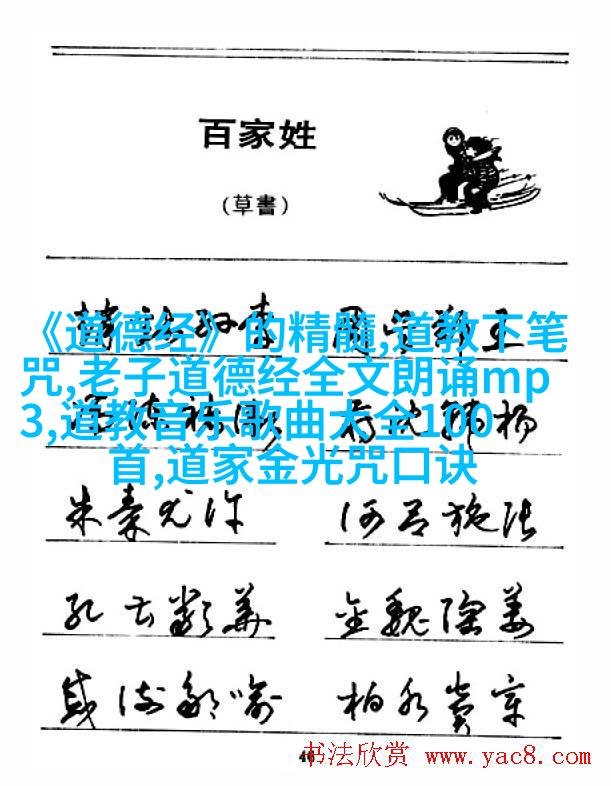 百家姓
(草書)
《道德经》的精髓,道教下笔
咒,老子道德经全文朗诵mp
3,道教音乐歌曲大全100
首,道家金光咒口诀
朱秦尤许 何吕施张
孔曹嚴華 金魏陶姜
戚谢鄒喻 柏水竇章
46
书法欣赏 www.yac8.com